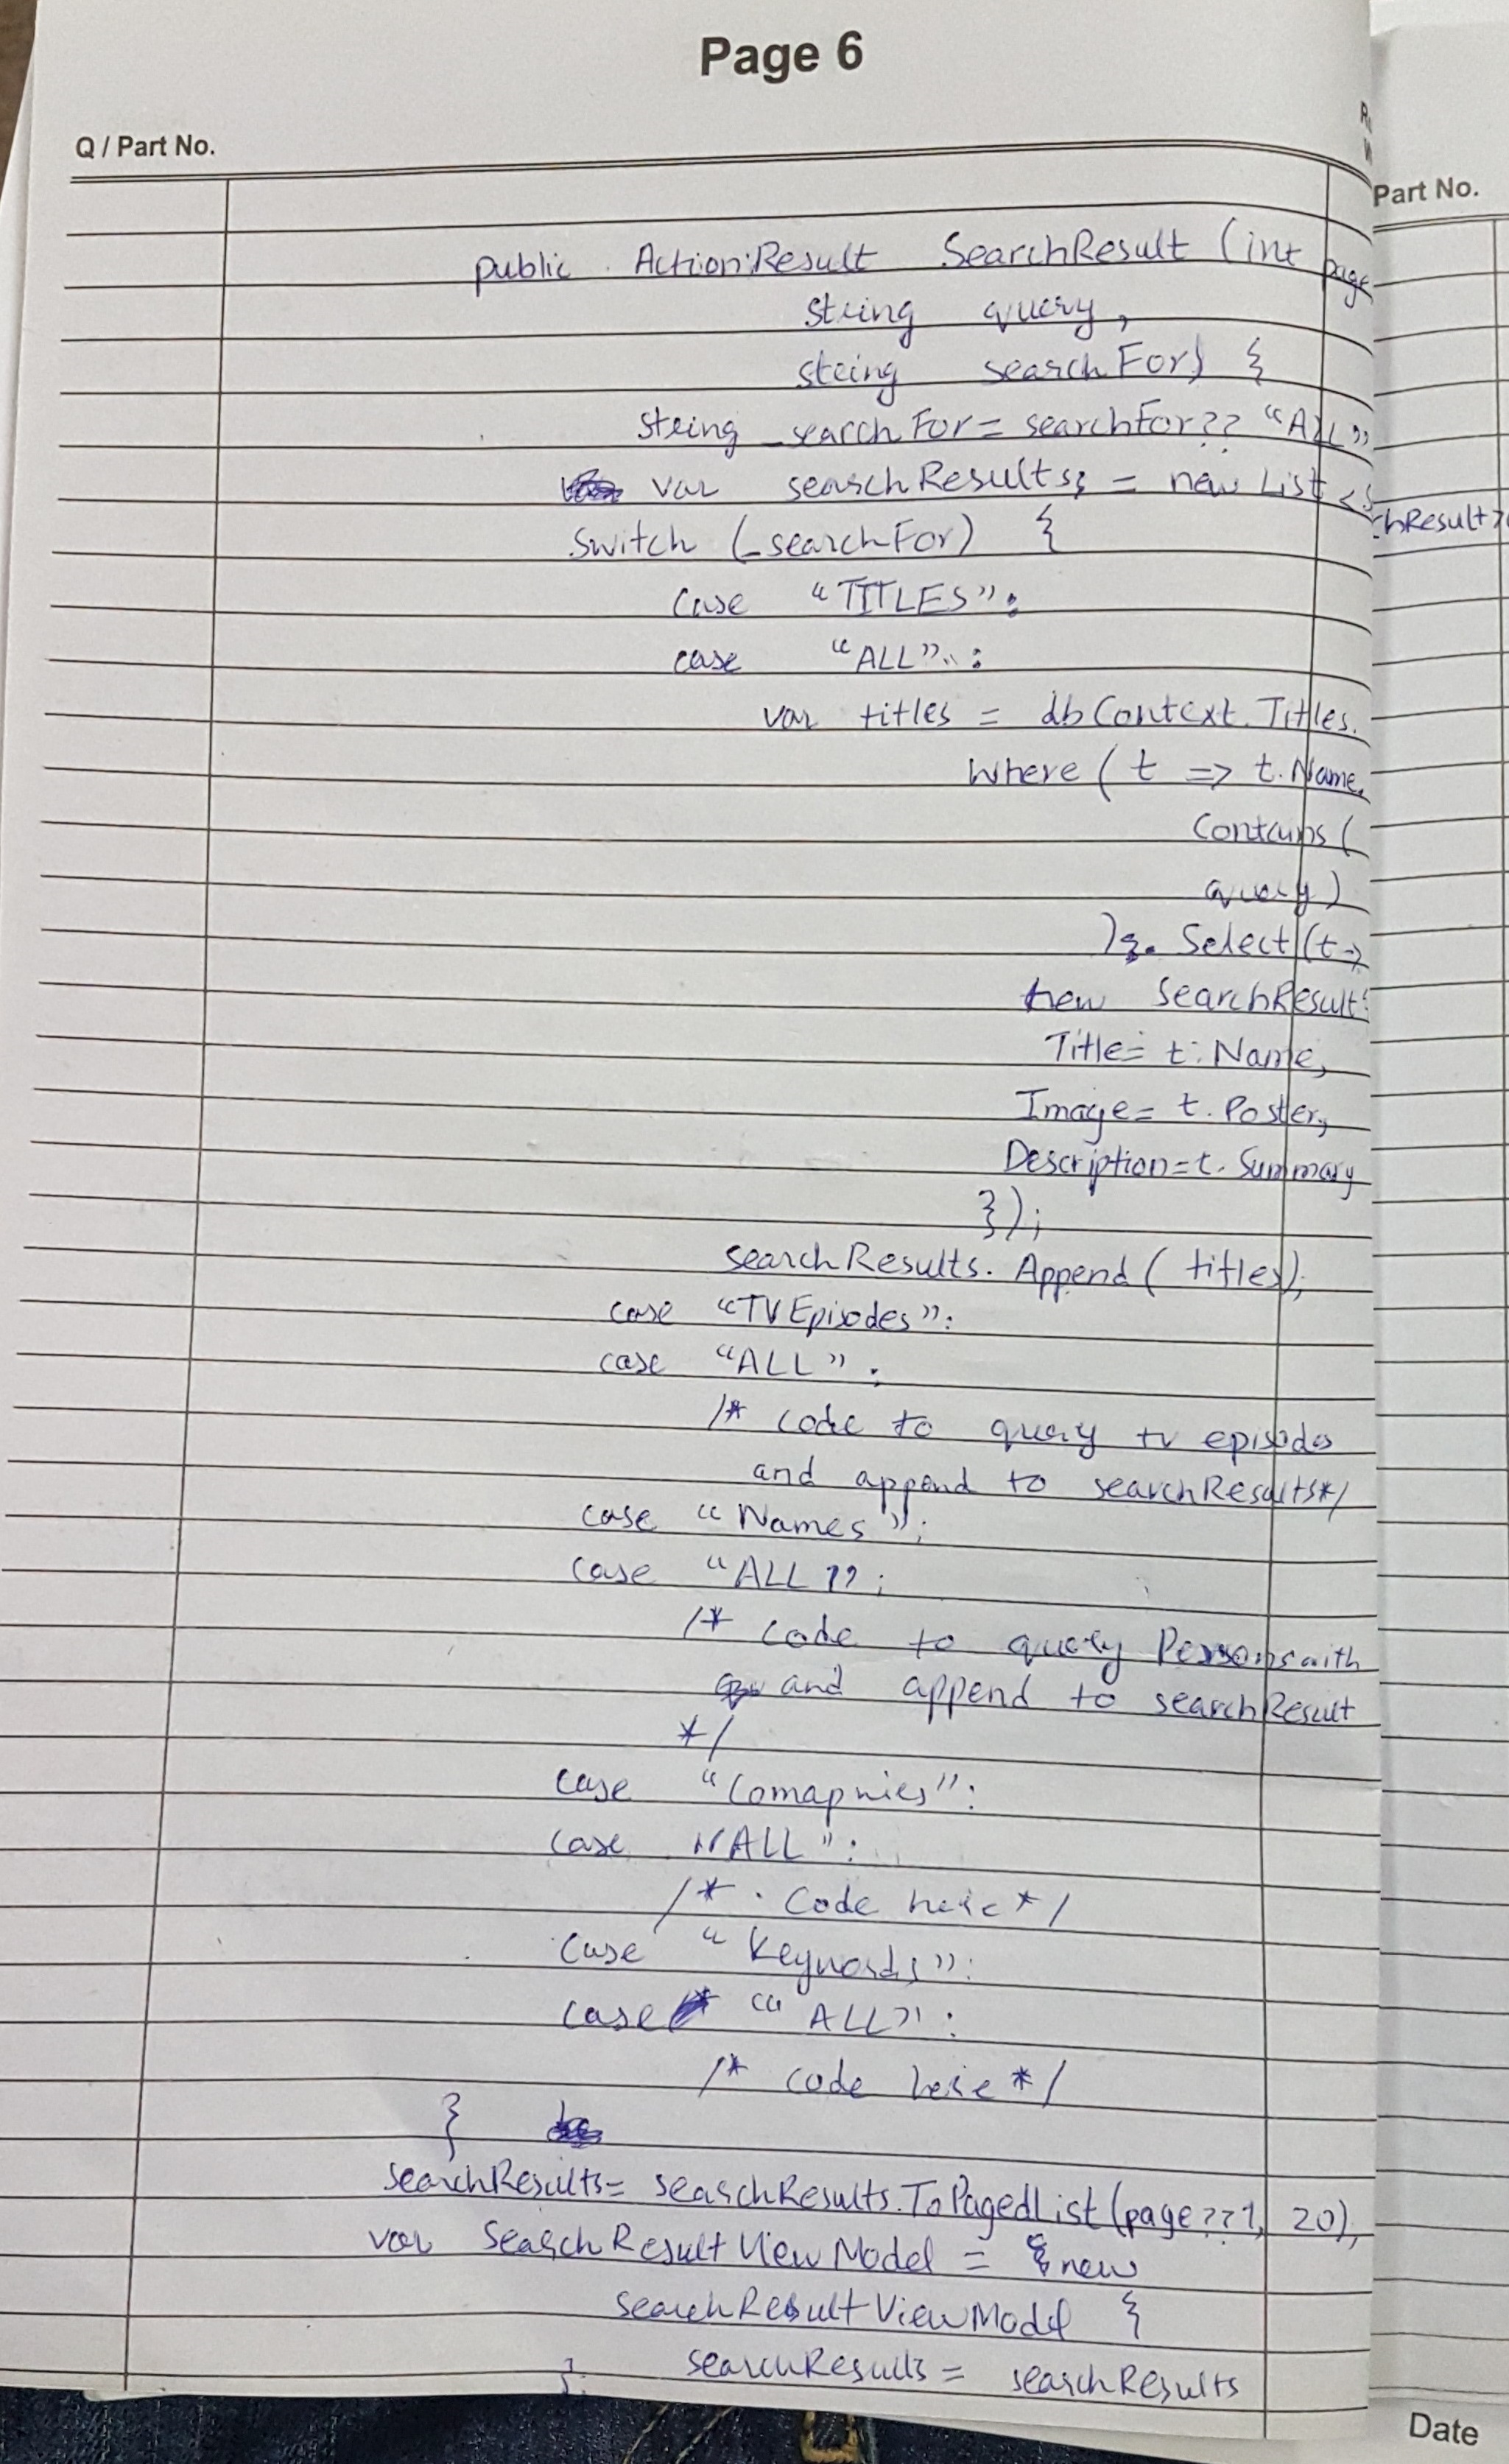 Page 6
Q / Part No.
Part No.
public ActionResult SearchResult (int page
string query,
string searchFor) {
string _searchFor = searchFor?? "ALL"
var searchResults; = new List <S
chResult>
switch (_searchFor) {
case "TITLES":
case "ALL":
var titles = dbContext.Titles.
Where ( t => t.Name.
Contains (
query)
). Select (t =>
new SearchResult {
Title = t.Name,
Image = t.Poster,
Description = t.Summary
});
searchResults. Append ( titles);
case "TVEpisodes":
case "ALL":
/* code to query tv episodes
and append to searchResults*/
case "Names":
case "ALL":
/* code to query Persons with
and append to searchResult
*/
case "Comapnies":
case "ALL":
/* code here */
case "Keywords":
case "ALL":
/* code here */
}
searchResults = searchResults.ToPagedList(page??1, 20);
var SearchResultViewModel = new
searchResultViewModel {
searchResults = searchResults
};
Date